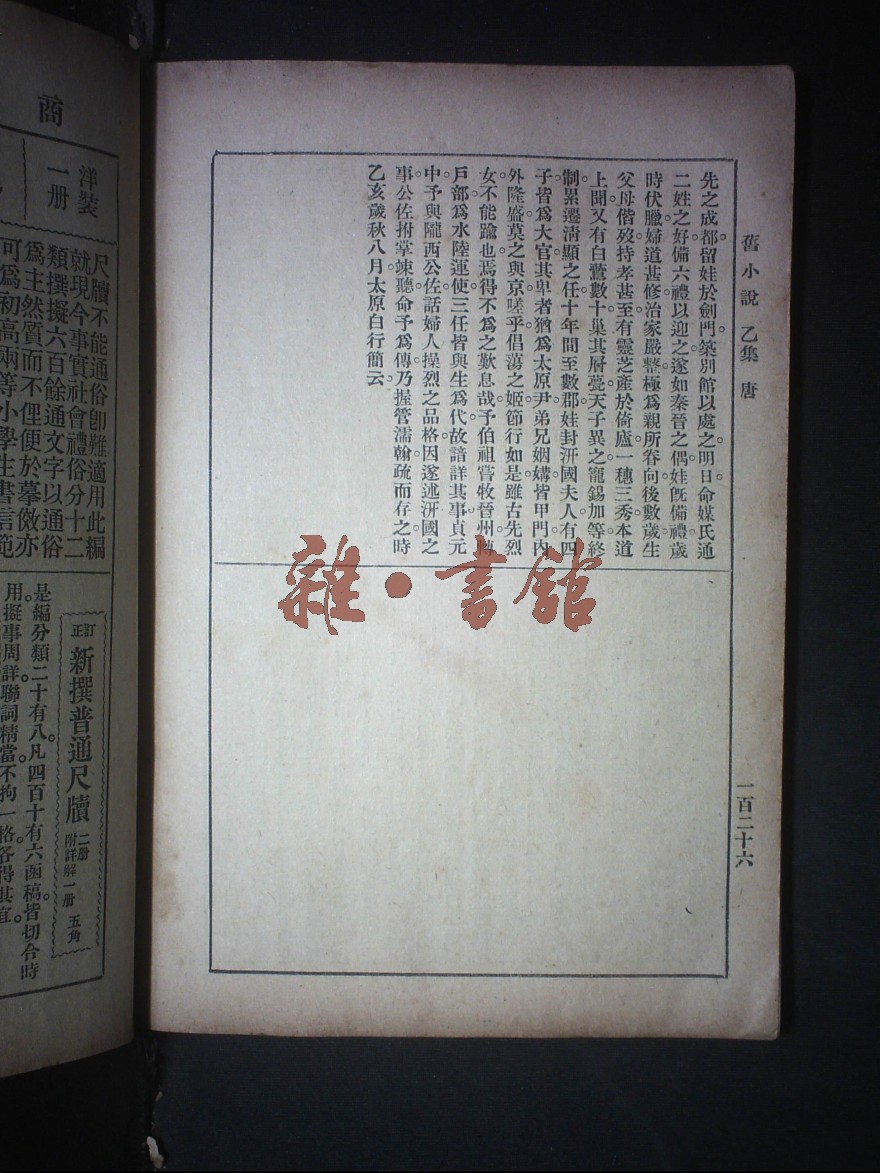 舊小說 乙集 唐
一百二十六
先之成都留娃於劍門築別館以處之。明日命媒氏通
二姓之好備六禮以迎之。遂如秦晉之偶娃旣備禮歲
時伏臘婦道甚修治家嚴整極爲親所眷向後數歲生
父母偕歿持孝甚至有靈芝產於倚廬一穗三秀本道
上聞又有白鷰數十巢其層甍天子異之寵錫加等終
制累遷淸顯之任十年間至數郡娃封汧國夫人有四
子皆爲大官其卑者猶爲太原尹弟兄姻媾皆甲門內
外隆盛莫之與京嗟乎倡蕩之姬節行如是雖古先烈
女不能踰也焉得不爲之歎息哉予伯祖嘗牧晉州轉
戶部爲水陸運使三任皆與生爲代故諳詳其事貞元
中予與隴西公佐話婦人操烈之品格因遂述汧國之
事公佐拊掌竦聽命予爲傳乃握管濡翰疏而存之時
乙亥歲秋八月太原白行簡云
雜·書館
商
洋裝
一册
尺牘不能通俗卽難適用此編
就現今事實社會禮俗分十二
類撰擬六百餘通文字以通俗
爲主然質而不俚便於摹倣亦
可爲初高兩等小學生書信範
訂正
新撰普通尺牘
二册
附詳解一册
五角
是編分類二十有八凡四百十有六函稿皆切合時
用擬事周詳聯詞精當不拘一格各得其宜